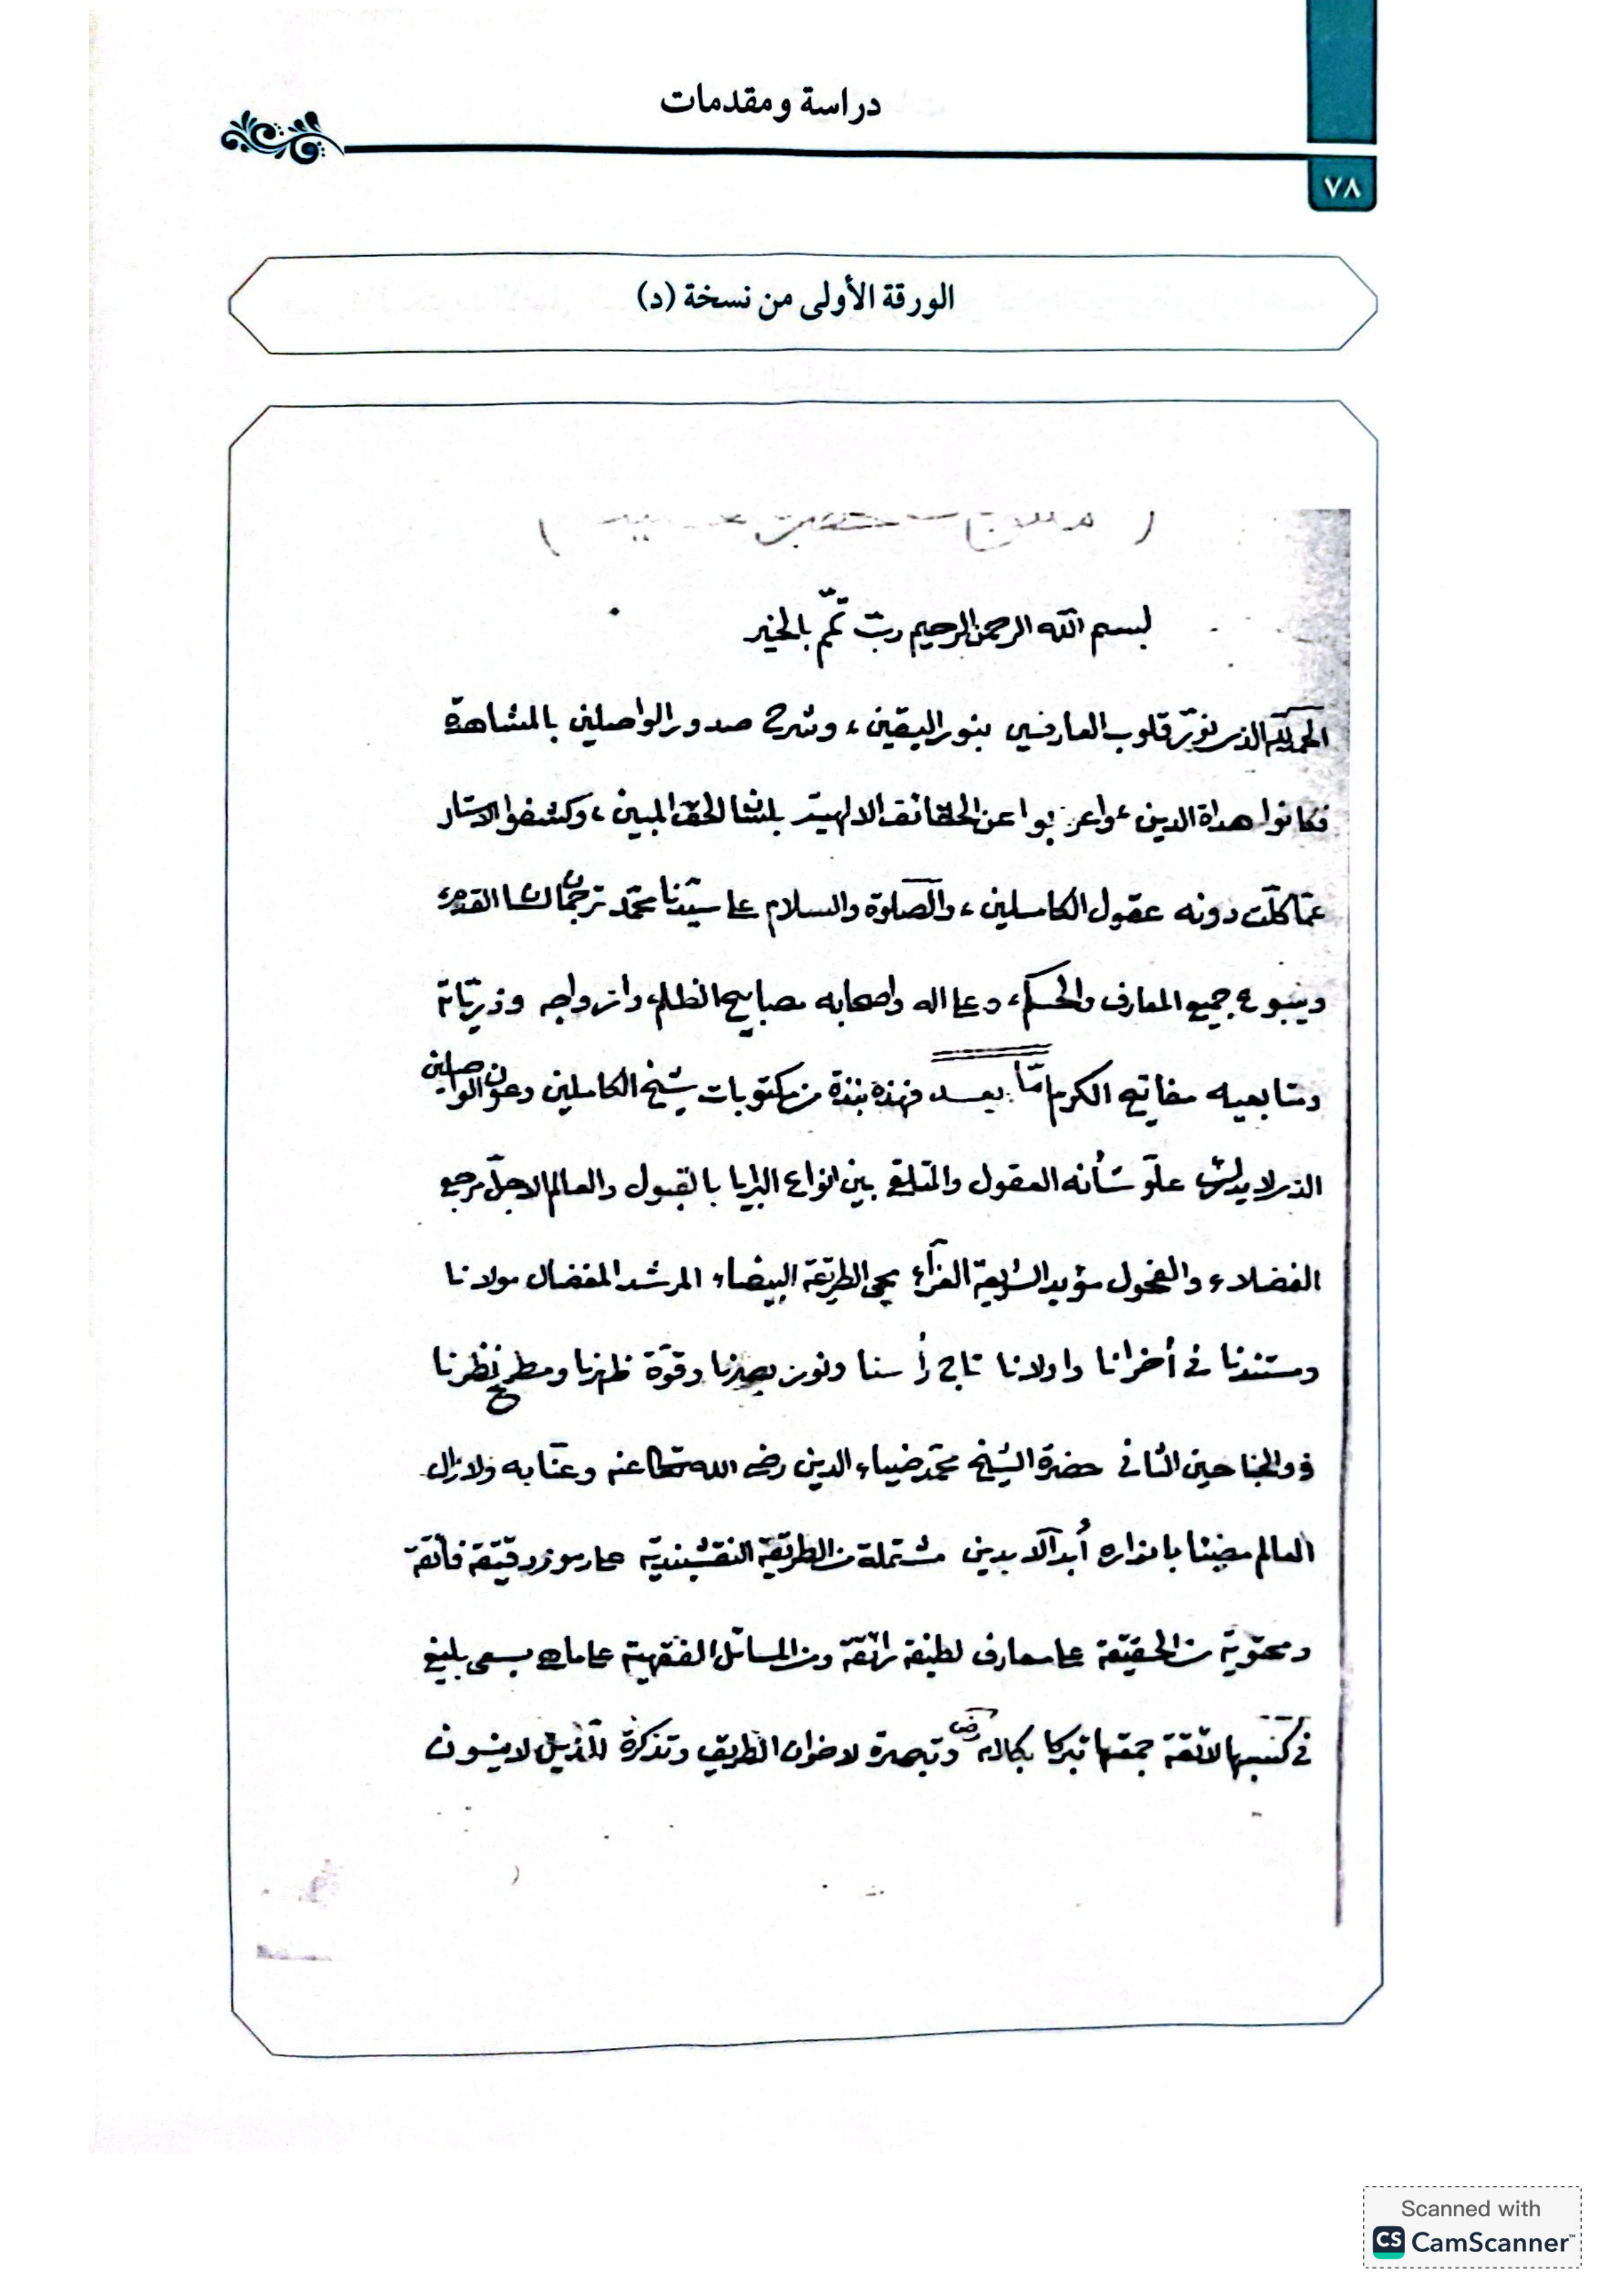 دراسة ومقدمات
٧٨
الورقة الأولى من نسخة (د)
بسم الله الرحمن الرحيم ربّ تمّم بالخير
الحمد لله الذى نوّر قلوب العارفين بنور اليقين، وشرح صدور الواصلين بالمشاهدة
فكانوا هداة الدين، واعربوا عن الحقائق الالهية بلسان الحق المبين، وكشفوا الاستار
عمّا كلّت دونه عقول الكاملين، والصّلوة والسلام على سيّدنا محمّد ترجمان لسان القدم،
وينبوع جميع المعارف والحكم، وعلى اله واصحابه مصابيح الظلم، وازواجه وذريّاته
ومتابعيه مفاتيح الكرم امّا بعد فهذه نبذة من مكتوبات شيخ الكاملين وعون الواصلين
الذى لا يدرك علوّ شأنه العقول والمتلقى بين انواع البرايا بالقبول والعالم الاجلّ مرجع
الفضلاء والفحول مؤيد الشريعة الغرّاء محى الطريقة البيضاء المرشد المفضال مولانا
ومستندنا فى أخرانا واولانا تاج رأسنا ونور بصرنا وقوّة ظهرنا ومطرح نظرنا
ذو الجناحين الثانى حضرة الشيخ محمّد ضياء الدين رضى الله تعالى عنه وعنّا به ولا زال
العالم مضيئا بانواره أبد الآبدين مشتملة من الطريقة النقشبندية على رموز دقيقة فائقة
ومحتوية من الحقيقة على معارف لطيفة رائقة ومن المسائل الفقهية على ما يسعى بليغ
فى كتبها لائقة جمعتها تبركا بكلامه رض وتبصرة لاخوان الطريق وتذكرة للذين لا ينسون
Scanned with
CS CamScanner